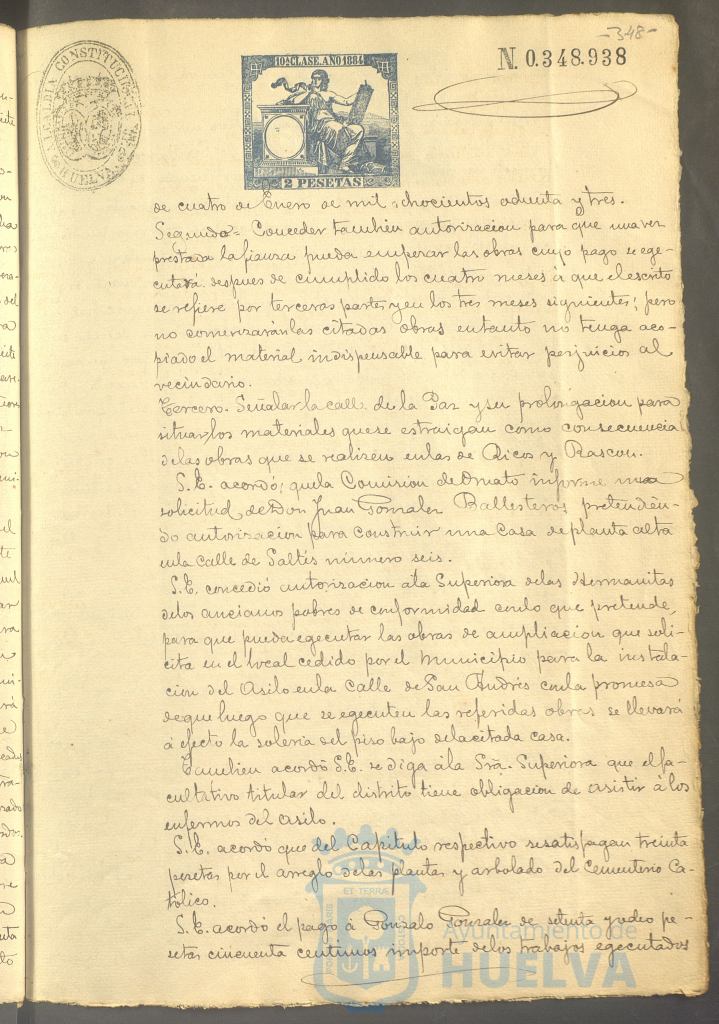 -348-
ALCALDIA CONSTITUCIONAL DE HUELVA
10ª CLASE. AÑO 1884
2 PESETAS
N. 0.348.938
de cuatro de Enero de mil ochocientos ochenta y tres.
Segundo = Conceder tambien autorizacion para que una vez
prestada la fianza pueda empezar las obras cuyo pago se ege-
cutará despues de cumplido los cuatro meses á que el escrito
se refiere por terceras partes y en los tres meses siguientes; pero
no comenzarán las citadas obras en tanto no tenga aco-
piado el material indispensable para evitar perjuicios al
vecindario.
Tercero. Señalar la calle de la Paz y su prolongacion para
situar los materiales que se estraigan como consecuencia
de las obras que se realizen en las de Ricos y Rascon.
S.E. acordó; que la Comision de Ornato informe una
solicitud de Don Juan Gonzalez Ballesteros pretendién-
do autorizacion para construir una casa de planta alta
en la calle de Saltés número seis.
S.E. concedió autorizacion á la Superiora de las Hermanitas
de los ancianos pobres de conformidad con lo que pretende,
para que pueda egecutar las obras de ampliacion que soli-
cita en el local cedido por el Municipio para la instala-
cion del Asilo en la Calle de San Andrés con la promesa
de que luego que se egecuten las referidas obras se llevará
á efecto la soleria del piso bajo de la citada casa.
Tambien acordó S.E. se diga á la Sra. Superiora que el fa-
cultativo titular del distrito tiene obligacion de asistir á los
enfermos del asilo.
S.E. acordó que del Capitulo respectivo se satisfagan treinta
pesetas por el arreglo de las plantas y arbolado del Cementerio Ca-
tólico.
S.E. acordó el pago á Gonzalo Gonzalez de setenta y ocho pe-
setas cincuenta centimos importe de los trabajos egecutados
Ayuntamiento de
HUELVA